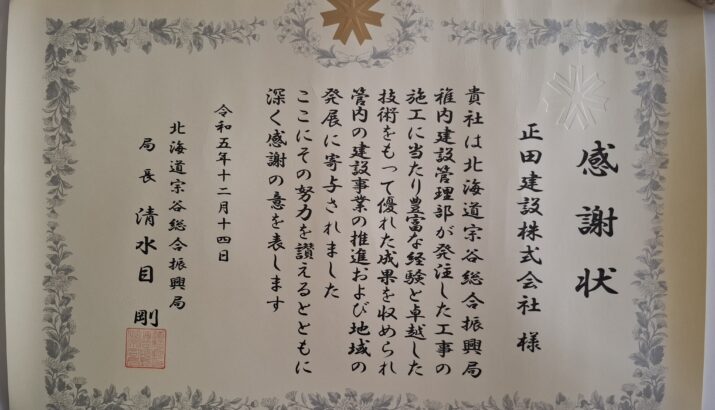 感謝状
正田建設株式会社 様
貴社は北海道宗谷総合振興局
稚内建設管理部が発注した工事の
施工に当たり豊富な経験と卓越した
技術をもって優れた成果を収められ
管内の建設事業の推進および地域の
発展に寄与されました
ここにその努力を讃えるとともに
深く感謝の意を表します
令和五年十二月十四日
北海道宗谷総合振興局
局長 清水目 剛